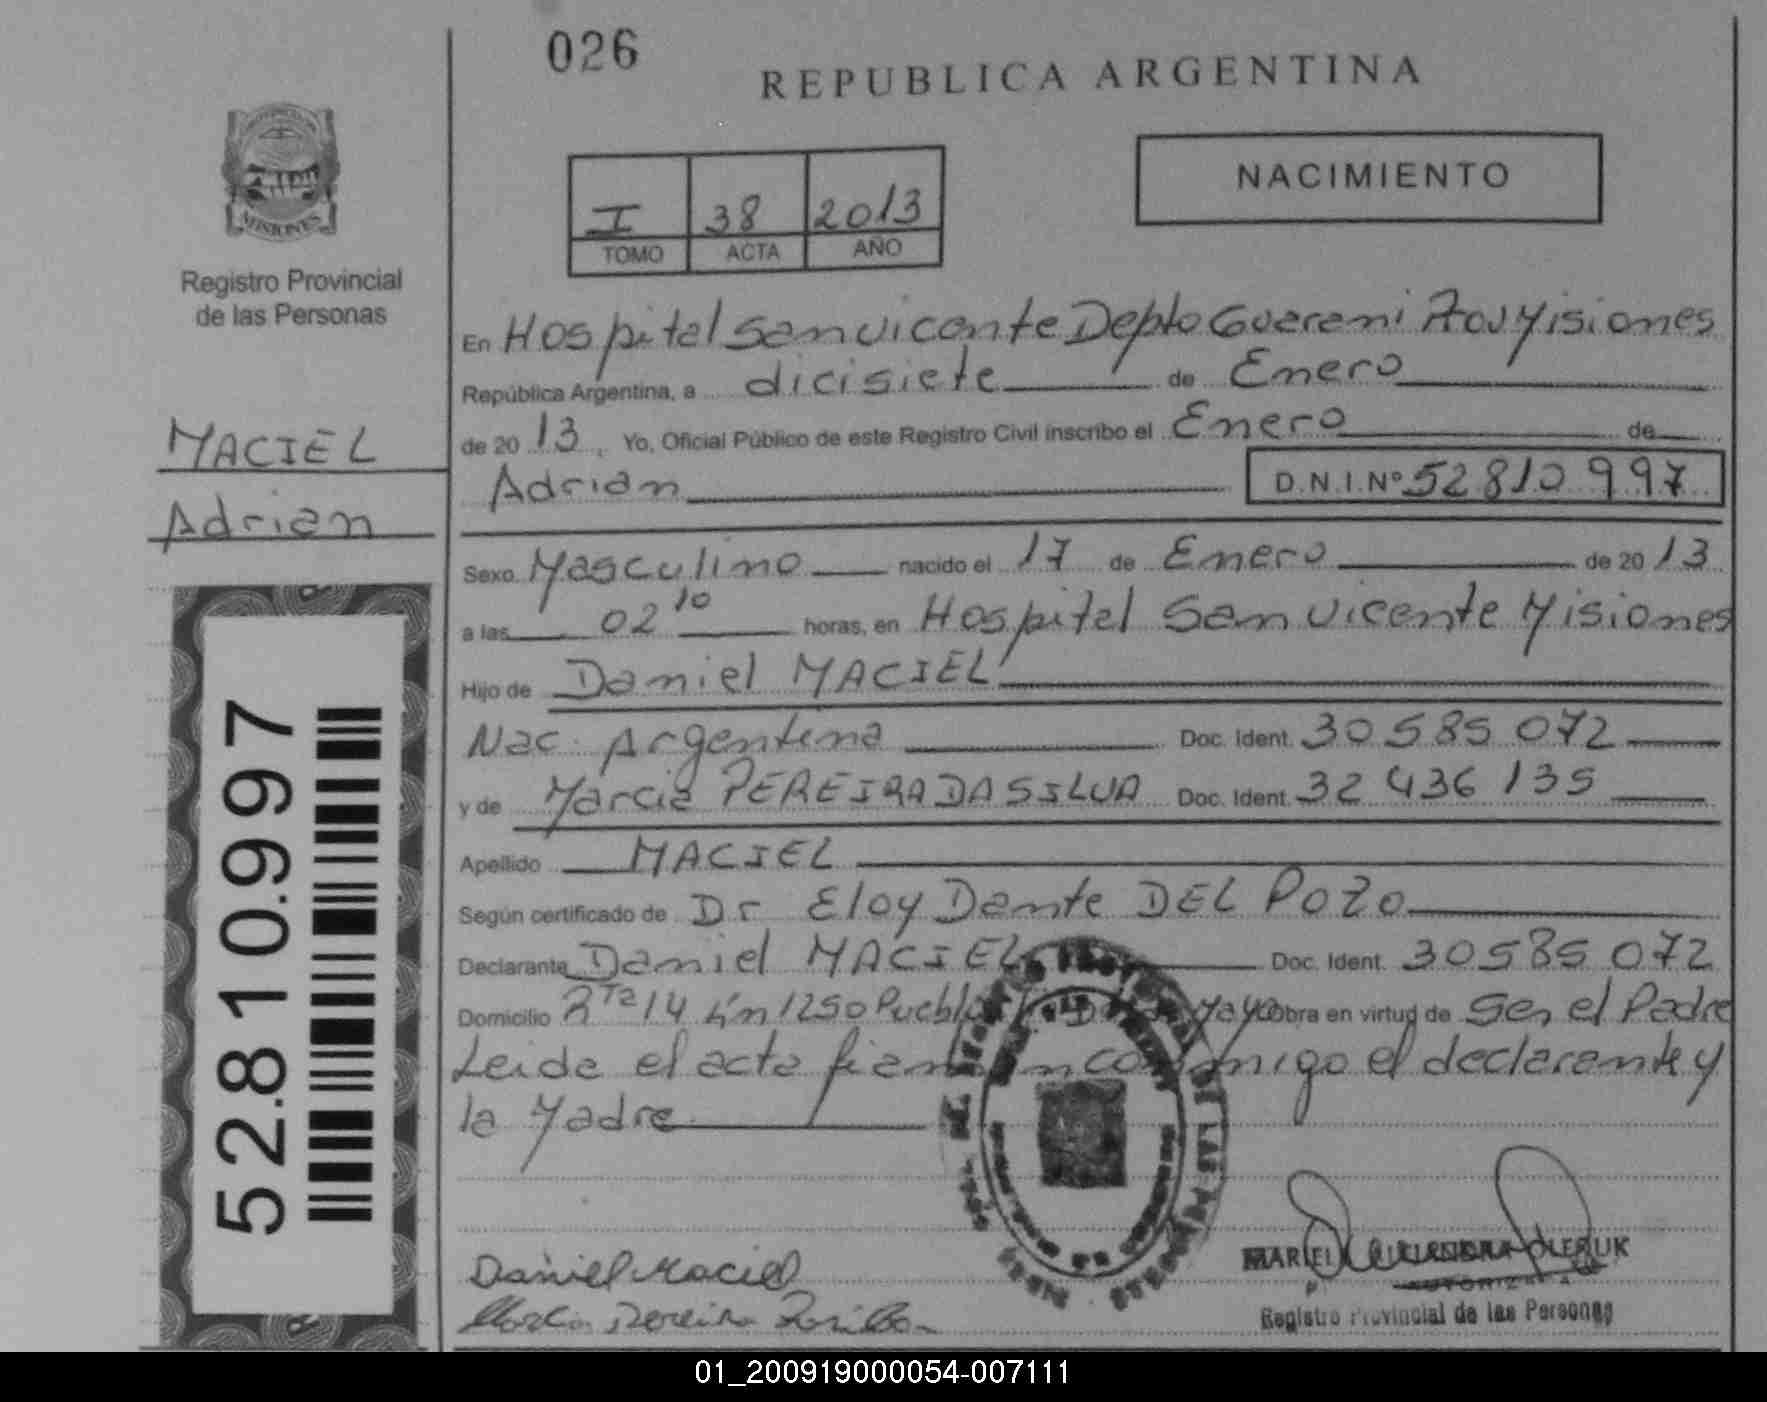 026
REPUBLICA ARGENTINA
NACIMIENTO
I 38 2013
TOMO ACTA AÑO
MISIONES
Registro Provincial
de las Personas
MACIEL
Adrian
52.810.997
En Hospital San Vicente Depto Guarani Misiones
República Argentina, a dicisiete de Enero
de 2013, Yo, Oficial Público de este Registro Civil inscribo el Enero de
Adrian D.N.I.Nº 52 810 997
Sexo Masculino nacido el 17 de Enero de 2013
a las 02 10 horas, en Hospital San Vicente Misiones
Hijo de Daniel MACIEL
Nac. Argentina Doc. Ident. 30 585 072
y de Marcia PEREIRA DA SILVA Doc. Ident. 32 436 135
Apellido MACIEL
Según certificado de Dr Eloy Dante DEL POZO
Declarante Daniel MACIEL Doc. Ident. 30 585 072
Domicilio Rta 14 km 1250 Pueblo obra en virtud de Ser el Padre
Leida el acta firman conmigo el declarante y
la Madre
Daniel Maciel
Registro Provincial de las Personas
01_200919000054-007111